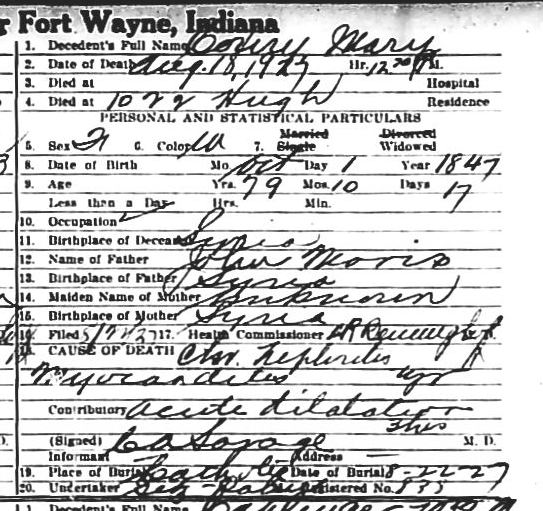 r Fort Wayne, Indiana
1. Decedent's Full Name Coury Mary
2. Date of Death Aug. 18, 1927 Hr. 12 30 P M.
3. Died at Hospital
4. Died at 1022 Hugh Residence
PERSONAL AND STATISTICAL PARTICULARS
Married Divorced
5. Sex F 6. Color W 7. Single Widowed
8. Date of Birth Mo. Oct Day 1 Year 1847
9. Age Yrs. 79 Mos. 10 Days 17
Less than a Day Hrs. Min.
10. Occupation
11. Birthplace of Deceased Syria
12. Name of Father
13. Birthplace of Father Syria
14. Maiden Name of Mother Unknown
15. Birthplace of Mother Syria
16. Filed 17. Health Commissioner
18. CAUSE OF DEATH Chr. Nephritis
Myocarditis
Contributory Acute dilatation
(Signed) C A Savage M. D.
Informant Address
19. Place of Burial Catholic Date of Burial 8-22-27
20. Undertaker Registered No. 835
1. Decedent's Full Name